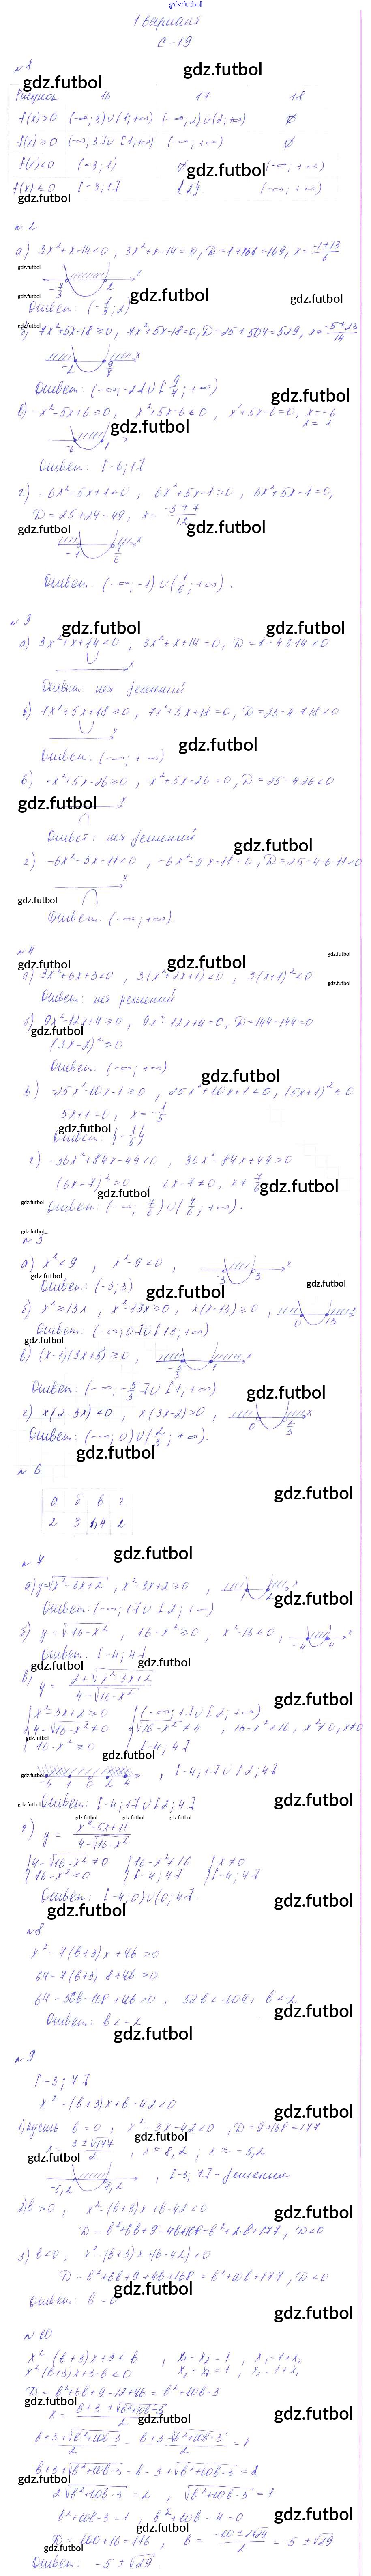 gdz.futbol
1 вариант
С-19
№1
gdz.futbol gdz.futbol
Рисунок 16 17 18
f(x)>0 (-∞;3)∪(1;+∞) (-∞;2)∪(2;+∞) ∅
f(x)≥0 (-∞;3]∪[1;+∞) (-∞;+∞) ∅
f(x)<0 [-3;1) ∅ (-∞;+∞)
gdz.futbol
f(x)≤0 [-3;1] {2}. (-∞;+∞)
gdz.futbol
№2
а) 3x²+x-14<0, 3x²+x-14=0, D=1+168=169, x=(-1±13)/6
gdz.futbol
-7/3 2 x
gdz.futbol gdz.futbol
Ответ: (-7/3;2)
gdz.futbol
б) 7x²+5x-18≥0, 7x²+5x-18=0, D=25+504=529, x=(-5±23)/14
-2 9/7 x
Ответ: (-∞;-2]∪[9/7;+∞)
gdz.futbol
в) -x²-5x+6≥0, x²+5x-6≤0, x²+5x-6=0, x=-6
x=1
gdz.futbol
-6 1
Ответ: [-6;1]
г) -6x²-5x+1<0, 6x²+5x-1>0, 6x²+5x-1=0,
D=25+24=49, x=(-5±7)/12
gdz.futbol gdz.futbol
-1 1/6
Ответ: (-∞;-1)∪(1/6;+∞).
№3
gdz.futbol gdz.futbol
а) 3x²+x+14<0, 3x²+x+14=0, D=1-4·3·14<0
x
Ответ: нет решений
б) 7x²+5x+18≥0, 7x²+5x+18=0, D=25-4·7·18<0
x
gdz.futbol
Ответ: (-∞;+∞)
в) -x²+5x-26≥0, -x²+5x-26=0, D=25-4·26<0
gdz.futbol x
Ответ: нет решений
gdz.futbol
г) -6x²-5x-11<0, -6x²-5x-11=0, D=25-4·6·11<0
x
gdz.futbol
Ответ: (-∞;+∞).
№4
gdz.futbol gdz.futbol gdz.futbol
а) 3x²+6x+3<0, 3(x²+2x+1)<0, 3(x+1)²<0
gdz.futbol
Ответ: нет решений
б) 9x²-12x+4≥0, 9x²-12x+4=0, D=144-144=0
gdz.futbol
(3x-2)²≥0
Ответ: (-∞;+∞)
gdz.futbol
в) -25x²-10x-1≥0, 25x²+10x+1≤0, (5x+1)²≤0
5x+1=0, x=-1/5
gdz.futbol
Ответ: {-1/5}
г) -36x²+84x-49<0, 36x²-84x+49>0
(6x-7)²>0, 6x-7≠0, x≠7/6
gdz.futbol gdz.futbol
gdz.futbol
Ответ: (-∞;7/6)∪(7/6;+∞).
gdz.futbol
№5
а) x²<9, x²-9<0, -3 3 x
gdz.futbol gdz.futbol
Ответ: (-3;3)
gdz.futbol
б) x²≥13x, x²-13x≥0, x(x-13)≥0, 0 13 x
Ответ: (-∞;0]∪[13;+∞)
gdz.futbol
в) (x-1)(3x+5)≥0, -5/3 1 x
Ответ: (-∞;-5/3]∪[1;+∞)
gdz.futbol
г) x(2-3x)<0, x(3x-2)>0, 0 2/3 x
Ответ: (-∞;0)∪(2/3;+∞).
gdz.futbol
№6
gdz.futbol
а б в г
2 3 1,4 2
gdz.futbol
№7
а) y=√(x²-3x+2), x²-3x+2≥0, 1 2 x
gdz.futbol
Ответ: (-∞;1]∪[2;+∞)
б) y=√(16-x²), 16-x²≥0, x²-16≤0, -4 4 x
Ответ: [-4;4]
gdz.futbol gdz.futbol
в) y=(2+√(x²-3x+2))/(4-√(16-x²))
gdz.futbol
{x²-3x+2≥0 {(-∞;1]∪[2;+∞)
{4-√(16-x²)≠0 {√(16-x²)≠4, 16-x²≠16, x²≠0, x≠0
gdz.futbol
{16-x²≥0 {[-4;4]
gdz.futbol
gdz.futbol
-4 1 0 2 4, [-4;1]∪[2;4]
gdz.futbol gdz.futbol
Ответ: [-4;1]∪[2;4]
gdz.futbol gdz.futbol gdz.futbol
г) y=(x²-5x+11)/(4-√(16-x²))
{4-√(16-x²)≠0 {16-x²≠16 {x≠0
{16-x²≥0 {[-4;4] {[-4;4]
Ответ: [-4;0)∪(0;4].
gdz.futbol
gdz.futbol
№8
x²-7(b+3)x+4b>0
64-7(b+3)·8+4b>0
64-56b-168+4b>0, 52b<-104, b<-2
gdz.futbol
Ответ: b<-2
gdz.futbol
№9
[-3;7]
x²-(b+3)x+b-42<0
gdz.futbol
1) пусть b=0, x²-3x-42<0, D=9+168=177
gdz.futbol
x=(3±√177)/2, x≈8,2; x≈-5,2
gdz.futbol
-5,2 8,2, [-3;7]-решения
2) b>0, x²-(b+3)x+b-42<0
gdz.futbol
D=b²+6b+9-4b+168=b²+2b+177, D<0
3) b<0, x²-(b+3)x+(b-42)<0
D=b²+6b+9+4b+168=b²+10b+177, D<0
gdz.futbol
Ответ: b=0
gdz.futbol
№10
x²-(b+3)x+3<b, x₁-x₂=1, x₁=1+x₂
x²-(b+3)x+3-b<0, x₂-x₁=1, x₂=1+x₁
D=b²+6b+9-12+4b=b²+10b-3
gdz.futbol
x=(b+3±√(b²+10b-3))/2
gdz.futbol gdz.futbol
(b+3+√(b²+10b-3))/2-(b+3-√(b²+10b-3))/2=1
b+3+√(b²+10b-3)-b-3+√(b²+10b-3)=2
gdz.futbol
2√(b²+10b-3)=2, √(b²+10b-3)=1
b²+10b-3=1, b²+10b-4=0
gdz.futbol
gdz.futbol
D=100+16=116, b=(-10±2√29)/2=-5±√29
gdz.futbol
Ответ: -5±√29.